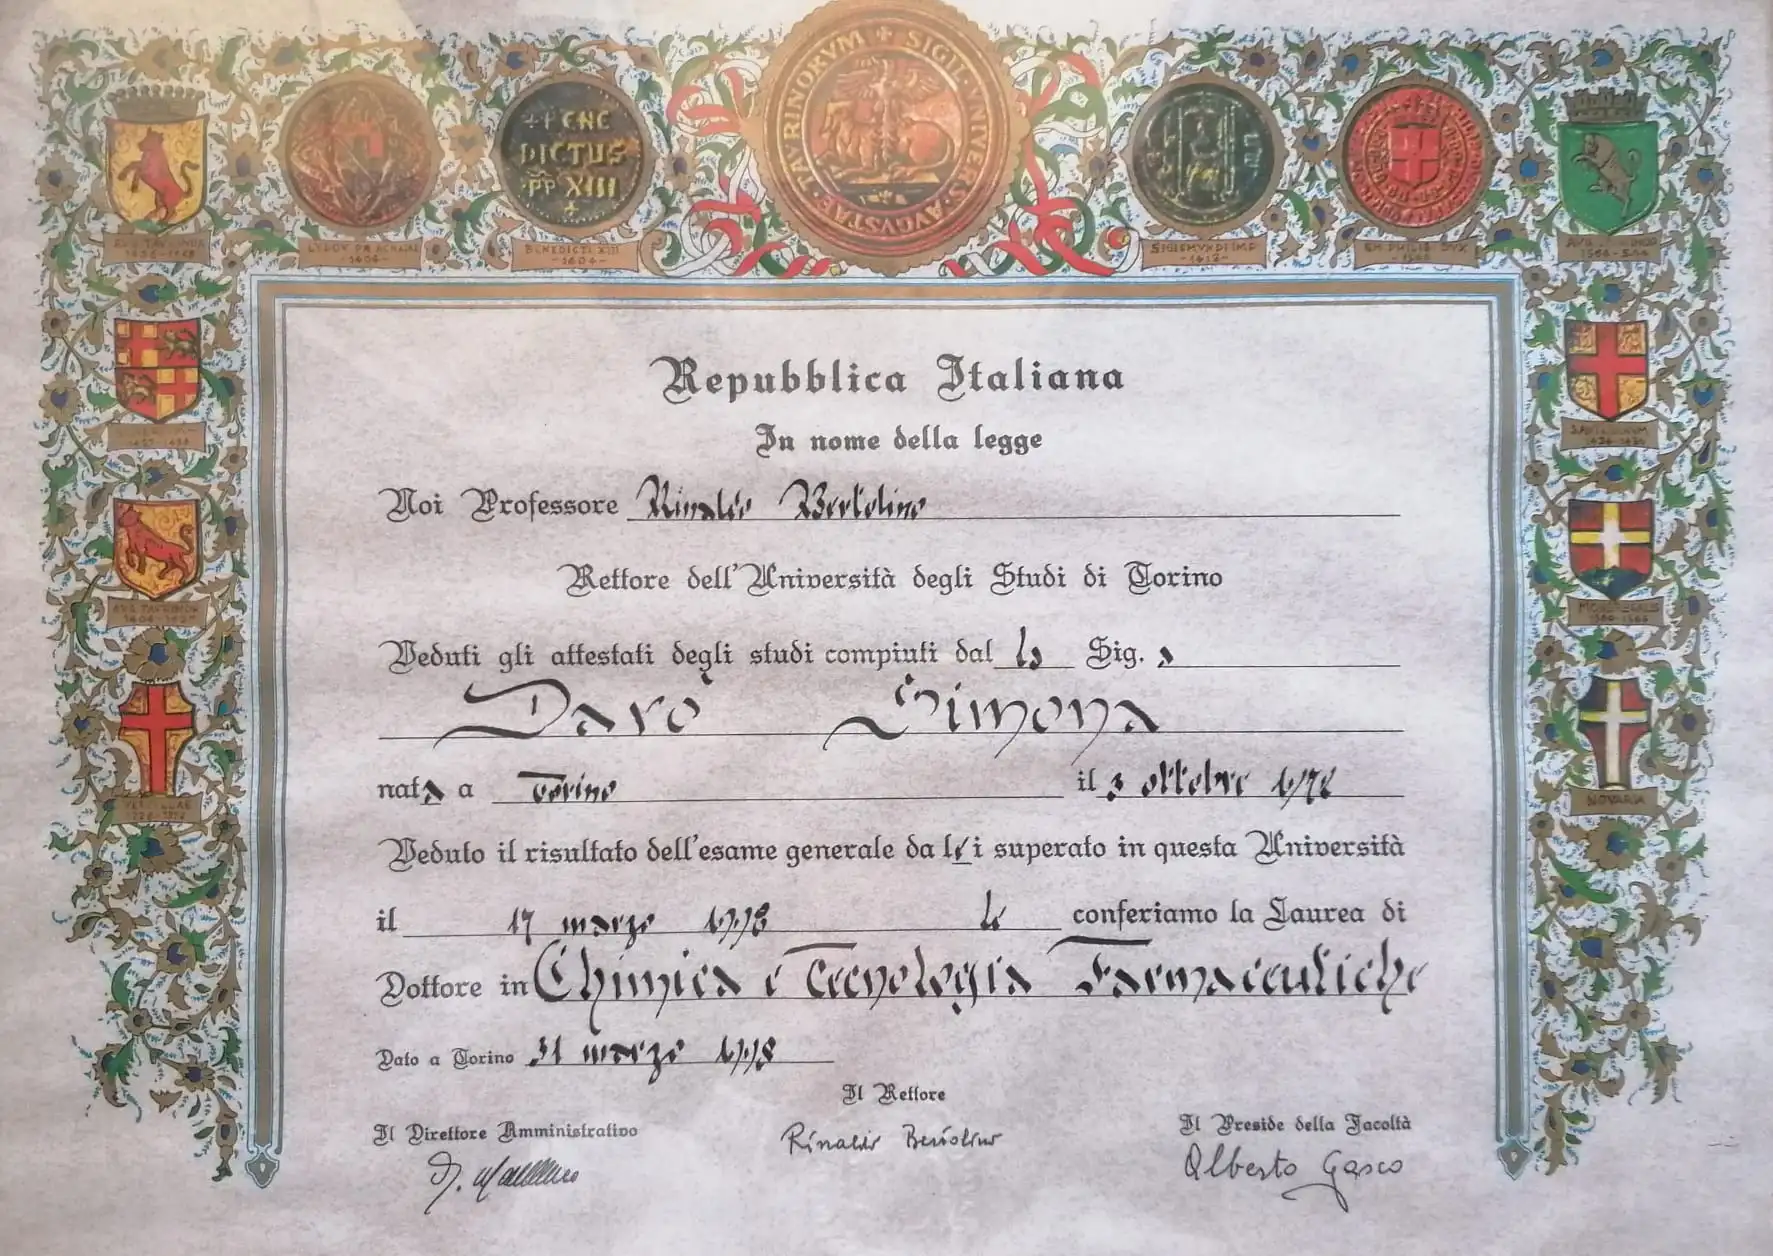 TAVRINORVM ✠ SIGIL · VNIVERS · AVGVSTAE
BENE
DICTUS
PP XIII
BENEDICTI XIII
- 1404 -
SIGISMVNDI IMP
- 1412 -
NOVARIA
Repubblica Italiana
In nome della legge
Noi Professore Rinaldo Bertolino
Rettore dell'Università degli Studi di Torino
Veduti gli attestati degli studi compiuti dal la Sig. a
Darò Simona
nata a Torino il 3 ottobre 1972
Veduto il risultato dell'esame generale da lei superato in questa Università
il 17 marzo 1998 le conferiamo la Laurea di
Dottore in Chimica e Tecnologia Farmaceutiche
Dato a Torino 31 marzo 1998
Il Rettore
Il Direttore Amministrativo Il Preside della Facoltà
Rinaldo Bertolino
Alberto Gasco